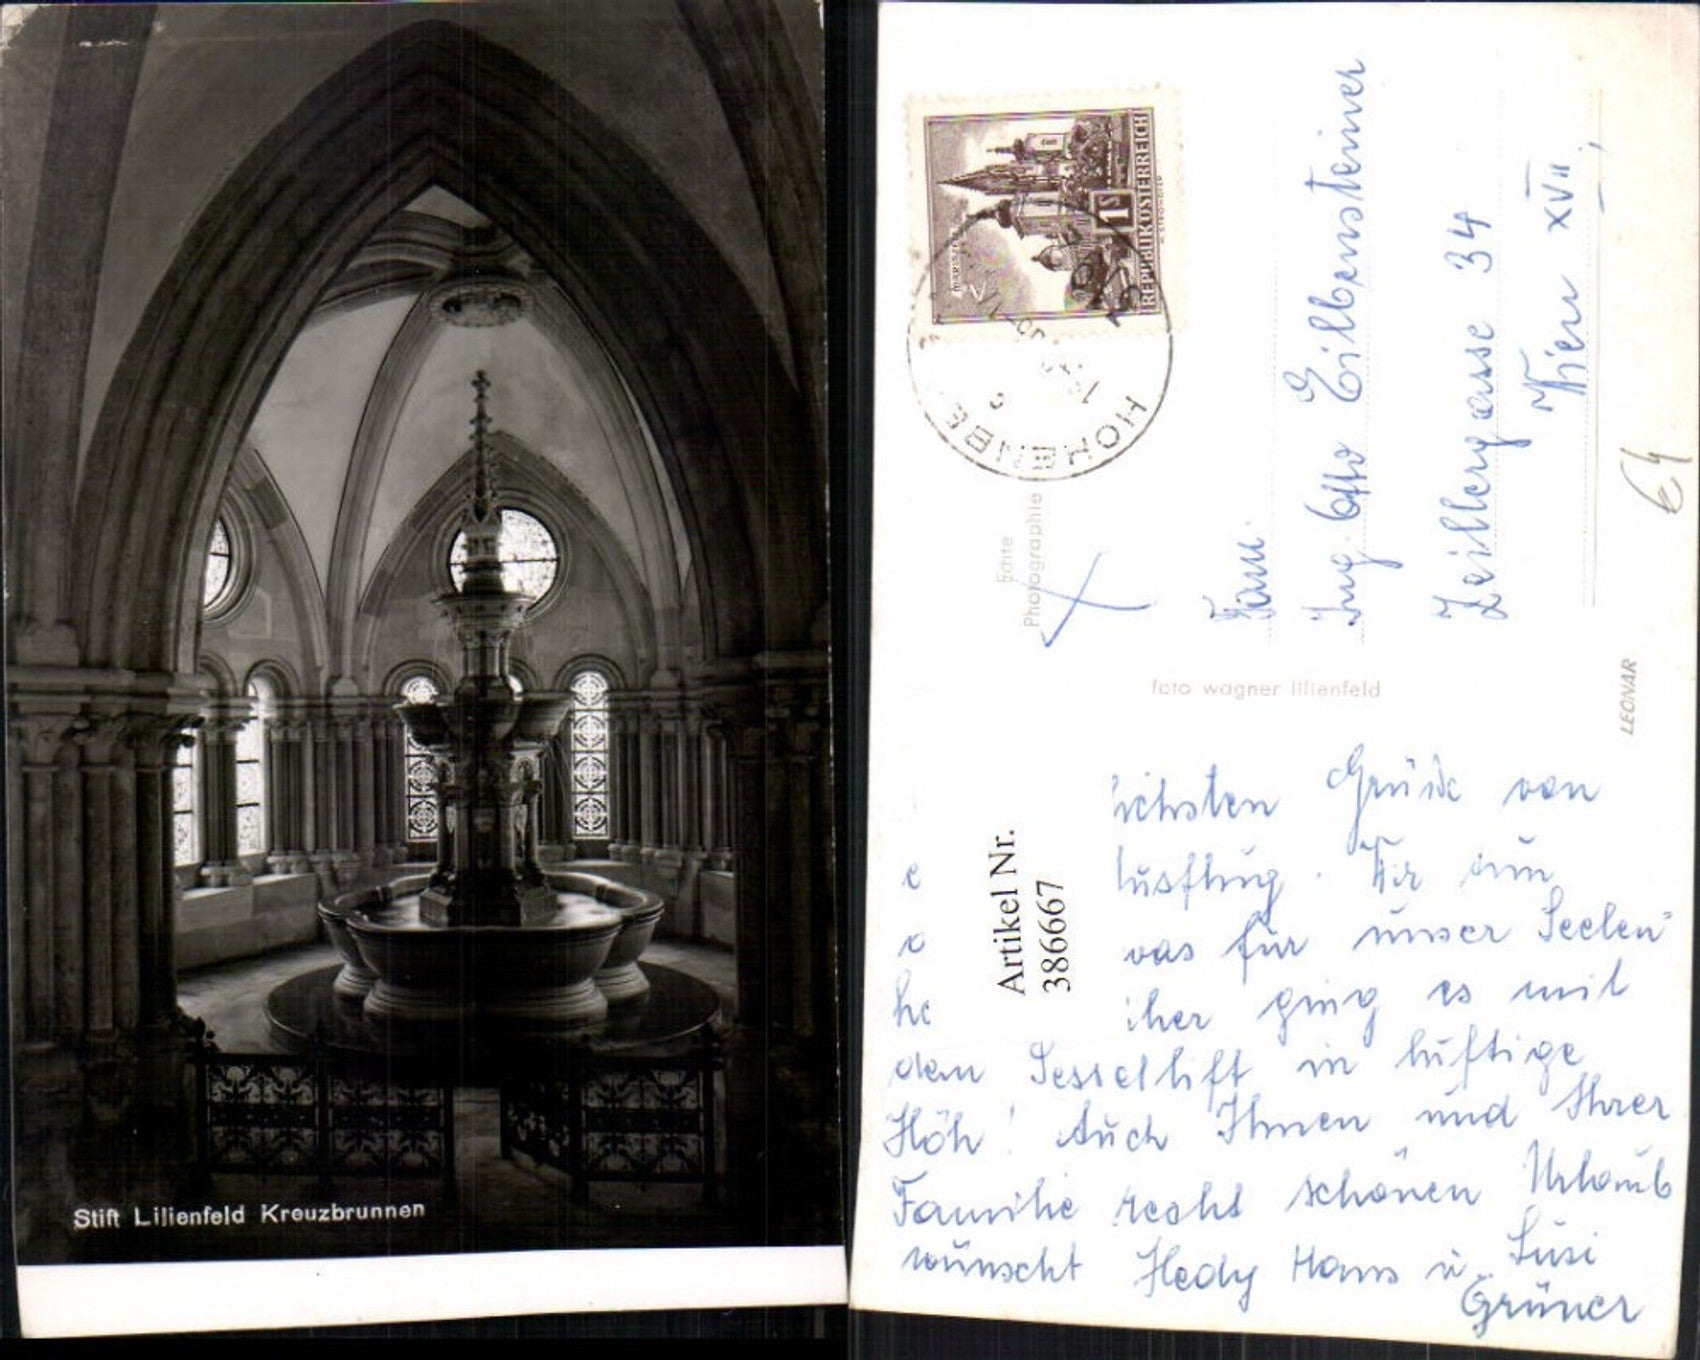 Stift Lilienfeld Kreuzbrunnen
REPUBLIK ÖSTERREICH
1S
HOHENBE
Echte
Photographie
Fam.
Ing. Otto Eilbensteiner
Zeillergasse 34
Wien XVII.
foto wagner lilienfeld
LEONAR
€4
Artikel Nr.
386667
ichsten Grüße von
e usflug. Wir
was für unser Seelen
her ging es mit
dem Sessellift in luftige
Höh! Auch Ihnen und Ihrer
Familie recht schönen Urlaub
wünscht Hedy Hans u. Susi
Grüner